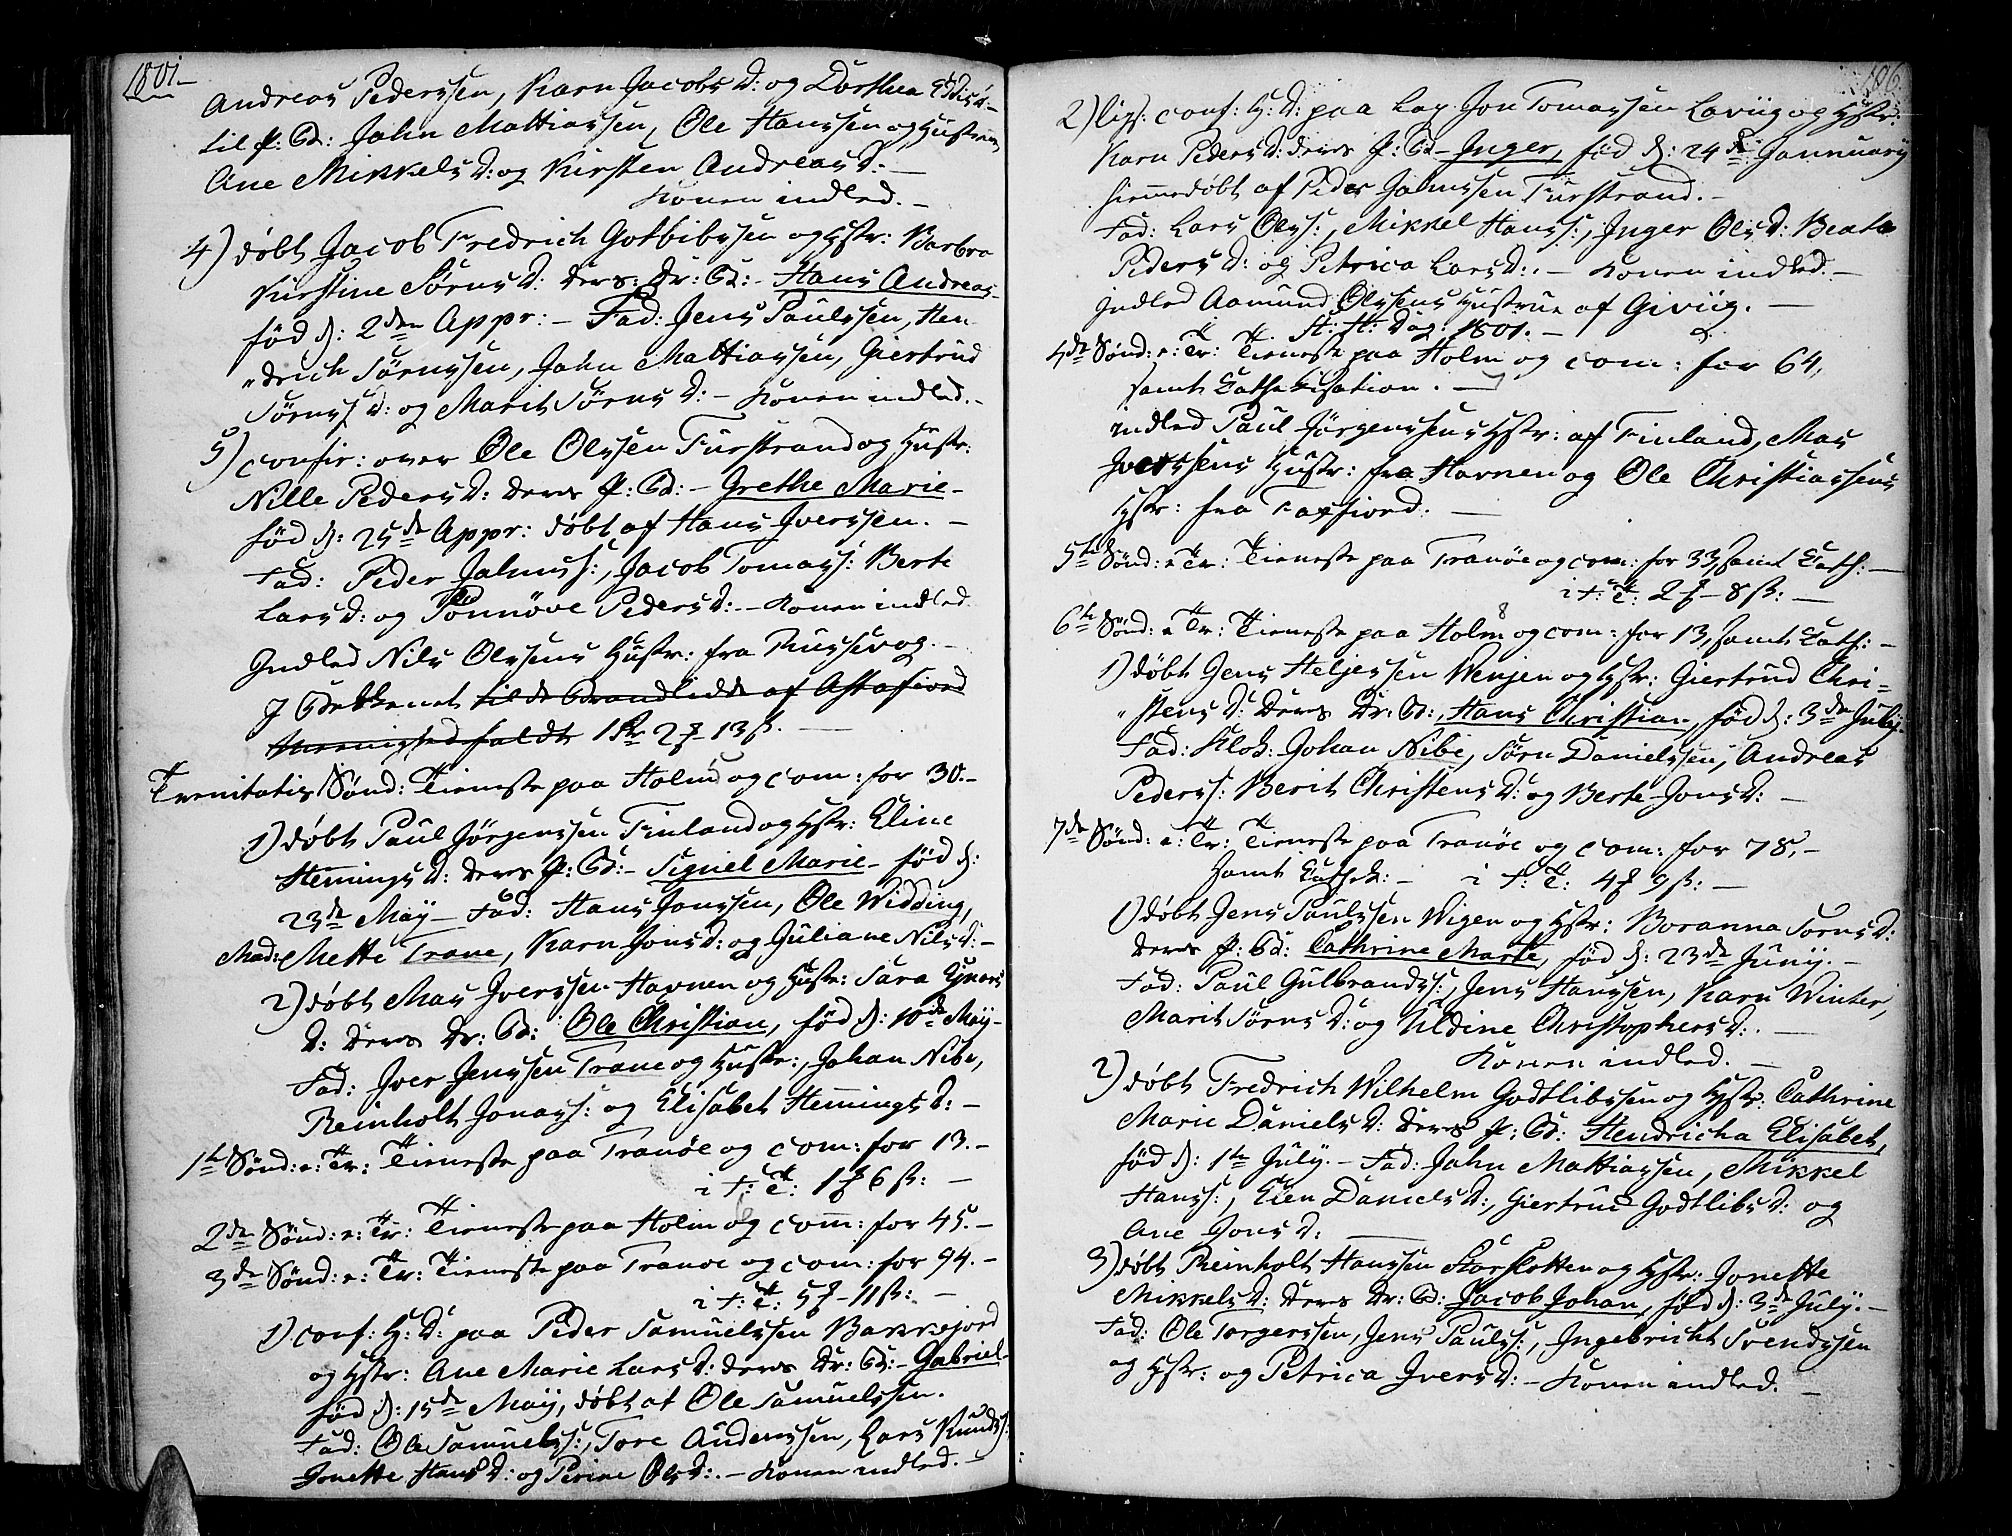 1801.
Andreas Pederssen, Karn Jacobs D: og Dorthea
til P: Bd: Jahn Mattiassen, Ole Hanssen og Hustrue
Ane Mikkels D: og Kirsten Andreas D: —
Konen indled. —
4) döbt Jacob Fredrich Gotbibssen og Hstr: Barbra
Kirstine Sörns D: Ders: Dr: Bd: - Hans Andreas -
föd d: 2den Appr: - Fad: Jens Paulssen, Hen
"drich Sörnssen, Jahn Mattiassen, Giertrud
Sörns D: og Marit Sörns D: - Konen indled. -
5) confir: over Ole Olssen Furstrand og Hustr:
Nille Peders D: ders P: Bd: - Grethe Marie -
föd d: 25de Appr: döbt af Hans Iverssen. -
Fad: Peder Jalmss:, Jacob Tomass: Berte
Lars D: og Pönnöve Peders D: - Konen indled.
Indled Nils Olssens Hustr: fra Russevog. -
I Bekkenet til de Brandlidde af Astafiord
faldt 1 Rr 2 f 13 ß. —
Trenitatis Sönd: Tieneste paa Holm og com: for 30. -
1) döbt Paul Jörgenssen Finland og Hstr: Eline
Hemings D: ders P: Bd: - Signel Marie - föd d:
23de May - Fad: Hans Jonssen, Ole Widding,
Mad: Mette Trane, Karn Jons D: og Juliane Nils D: -
2) döbt Mas Iverssen Havnen og Hustr: Sara
D: ders Dr: Bd: Ole Christian, föd d: 10de May -
Fad: Iver Jenssen Trane og Hustr:, Johan Nibe,
Reinholt Jonass: og Elisabet Hemings D: -
1te Sönd: e: Tr: Tieneste paa Tranöe og com: for 13. -
i F: T: 1 f 6 ß: —
2de Sönd: e: Tr: Tieneste paa Holm og com: for 45. -
3de Sönd: e: Tr: Tieneste paa Tranoe og com: for 94. -
i F: T: 5 f - 11 ß: —
1) conf: H: D: paa Peder Samuelssen Bakkejord
og Hstr: Ane Marie Lars D: ders Dr: Bd: - Gabriel -
föd d: 15de May, döbt af Ole Samuelssen.
Fad: Ole Samuelss:, Tore Anderssen, Lars Knuds:
Jonette Hans D: og Perine Ols D: - Konen indled. -
106.
2) ligs: conf: H: D: paa Lag Jon Tomassen Laviig og Hstr:
Karn Peders D: ders P: Bd - Inger, föd d: 24de Jannuary
hiemedöbt af Peder Jalmssen Furstrand. -
Fad: Lars Olss:, Mikkel Hanss:, Inger Ols D: Beata
Peders D: og Petrica Lars D: - Konen indled. -
Indled Aamund Olssens Hustrue af Giviig. —
St: H: Dag: 1801. -
4de Sönd: e: Tr: Tieneste paa Holm og com: for 64,
samt Cathekisation. —
indled Paul Jörgenssens Hstr: af Finland, Mas
Iverssens Hustr: fra Havnen og Ole Christianssens
Hstr: fra Faxfiord. —
5te Sönd: e Tr: Tieneste paa Tranöe og com: for 33, samt Cath: —
i F: T: 2 f - 8 ß: —
6te Sönd: e Tr: Tieneste paa Holm og com: for 13, samt Cath: -
1) döbt Jens Heljessen Wenjen og Hstr: Giertrud Chri-
"stens D: ders Dr: Bd:, Hans Christian, föd d: 3de July.
Fad: Klok: Johan Nibe, Sörn Danielssen, Andreas
Peders: Berit Christens D: og Berte Jons D: —
7de Sönd: e: Tr: Tieneste paa Tranöe og com: for 78, -
samt Cathek: - i F: T: 4 f 9 ß: —
1) döbt Jens Paulssen Wigen og Hstr: Boranna Sorns D:
ders P: Bd: Cathrine Marte, föd d: 23de Juny. -
Fad: Paul Gulbrandss:, Jens Hanssen, Karn Winter,
Marit Sörns D: og Uldine Christophers D: —
Konen indled. —
2) döbt Fredrich Wilhelm Godtlibssen og Hstr: Cathrine
Marie Daniels D: ders P: Bd: Hendricha Elisabet,
föd d: 1te July. - Fad: Jahn Mattiassen, Mikkel
Hanss:, Elen Daniels D:, Giertrud Godtlibs D: og
Ane Jons D: —
3) döbt Reinholt Hanssen Skarslotten og Hstr: Jonette
Mikkels D: ders Dr: Bd: Jacob Johan, föd d: 3de July. -
Fad: Ole Torgerssen, Jens Paulss:, Ingebricht Svendssen
og Hstr: og Petrica Ivers D: - Konen indled. —